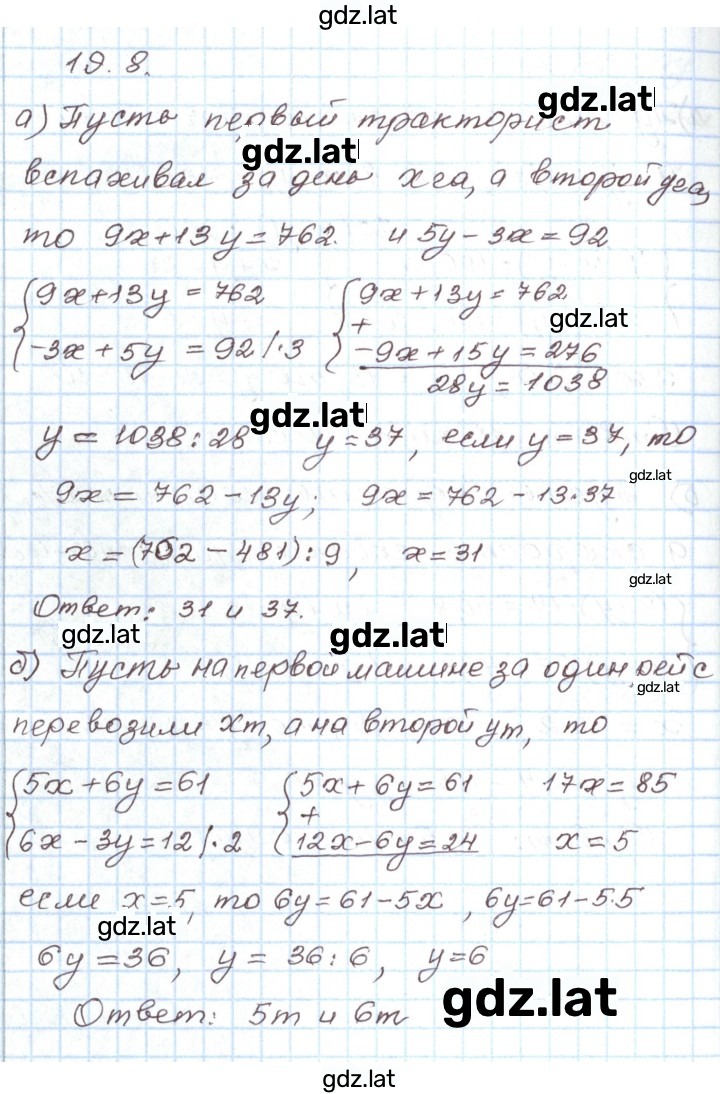 gdz.lat
19.8.
а) Пусть первый тракторист gdz.lat
gdz.lat
вспахивал за день x га, а второй y га,
то 9x+13y=762. и 5y-3x=92
{9x+13y=762 {9x+13y=762
+ gdz.lat
-3x+5y=92/·3 -9x+15y=276
28y=1038
gdz.lat
y=1038:28 y=37, если y=37, то
gdz.lat
9x=762-13y; 9x=762-13·37
x=(762-481):9, x=31
gdz.lat
Ответ: 31 и 37.
gdz.lat gdz.lat
б) Пусть на первой машине за один рейс
gdz.lat
перевозили xт, а на второй yт, то
{5x+6y=61 {5x+6y=61 17x=85
+
6x-3y=12/·2 12x-6y=24 x=5
если x=5, то 6y=61-5x, 6y=61-5·5
gdz.lat
6y=36, y=36:6, y=6
Ответ: 5т и 6т gdz.lat
gdz.lat